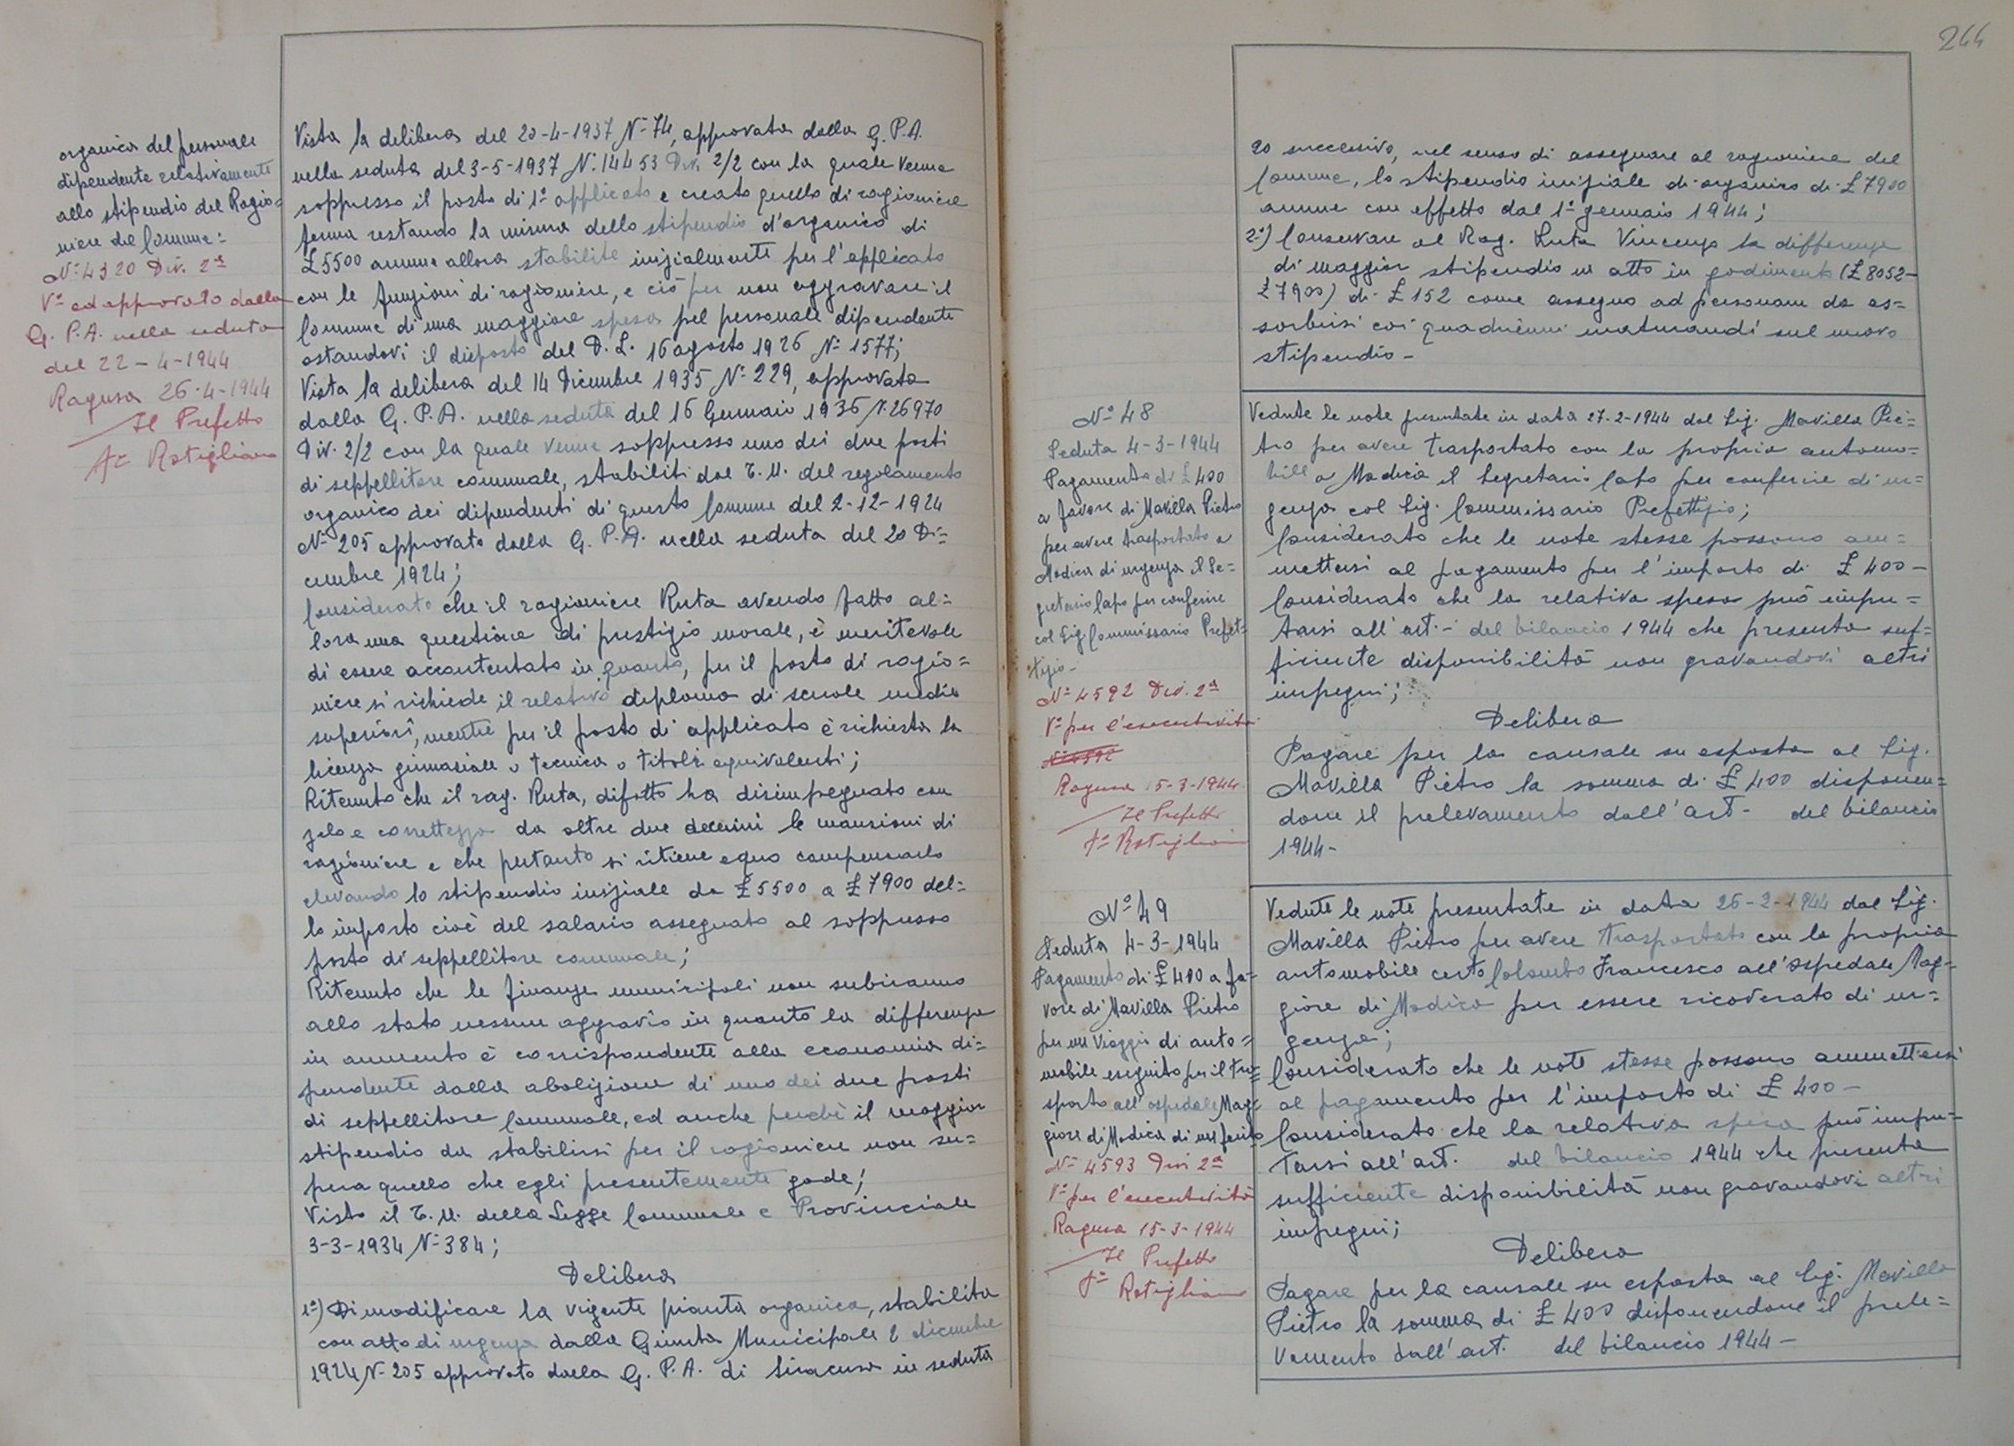 organica del personale
dipendente relativamente
allo stipendio del Ragio=
niere del Comune:
N.º 4320 Div. 2ª
Vº ed approvato dalla
G. P. A. nella seduta
del 22-4-1944
Ragusa 26-4-1944
Il Prefetto
Fº Rstigliano
Vista la delibera del 20-4-1937 Nº 74, approvata dalla G. P. A.
nella seduta del 3-5-1937 N. 14453 Div. 2/2 con la quale venne
soppresso il posto di 1º applicato e creato quello di ragioniere
ferma restando la misura dello stipendio d'organico di
£ 5500 annue allora stabilite inizialmente per l'applicato
con le funzioni di ragioniere, e ciò per non aggravare il
Comune di una maggiore spesa pel personale dipendente
ostandovi il disposto del D. L. 16 agosto 1926 Nº 1577;
Vista la delibera del 14 Dicembre 1935 Nº 229, approvata
dalla G. P. A. nella seduta del 16 Gennaio 1936 N. 26970
Div. 2/2 con la quale venne soppresso uno dei due posti
di seppellitore comunale, stabiliti dal T. U. del regolamento
organico dei dipendenti di questo Comune del 2-12-1924
Nº 205 approvato dalla G. P. A. nella seduta del 20 Di=
cembre 1924;
Considerato che il ragioniere Ruta avendo fatto al=
lora una questione di prestigio morale, è meritevole
di essere accontentato in quanto, per il posto di ragio=
niere si richiede il relativo diploma di scuole medie
superiori, mentre per il posto di applicato è richiesta la
licenza ginnasiale o tecnica o titoli equivalenti;
Ritenuto che il rag. Ruta, difatto ha disimpegnato con
zelo e correttezza da oltre due decenni le mansioni di
ragioniere e che pertanto si ritiene equo compensarlo
elevando lo stipendio iniziale da £ 5500 a £ 7900 del=
lo importo cioè del salario assegnato al soppresso
posto di seppellitore comunale;
Ritenuto che le finanze municipali non subiranno
allo stato nessun aggravio in quanto la differenza
in aumento è corrispondente alla economia di=
pendente dalla abolizione di uno dei due posti
di seppellitore Comunale, ed anche perchè il maggior
stipendio da stabilirsi per il ragioniere non su=
pera quello che egli presentemente gode;
Visto il T. U. della Legge Comunale e Provinciale
3-3-1934 Nº 384;
Delibera
1º) Di modificare la vigente pianta organica, stabilita
con atto di urgenza dalla Giunta Municipale 2 dicembre
1924 Nº 205 approvato dalla G. P. A. di Siracusa in seduta
244
20 successivo, nel senso di assegnare al ragioniere del
Comune, lo stipendio iniziale di organico di £ 7900
annue con effetto dal 1º gennaio 1944;
2º) Conservare al Rag. Ruta Vincenzo la differenza
di maggior stipendio in atto in godimento (£ 8052-
£ 7900) di £ 152 come assegno ad personam da as=
sorbirsi coi quadrienni maturandi sul nuovo
stipendio -
Nº 48
Seduta 4-3-1944
Pagamento di £ 400
a favore di Mavilla Pietro
per avere trasportato a
Modica di urgenza il Se=
gretario Capo per conferire
col Sig. Commissario Prefet=
tizio -
Nº 4592 Div. 2ª
Vº per l'esecutività
Ragusa 15-3-1944
Il Prefetto
Fº Rstigliano
Vedute le note presentate in data 27-2-1944 dal Sig. Mavilla Pie=
tro per avere trasportato con la propria automo=
bile a Modica il Segretario Capo per conferire di ur=
genza col Sig. Commissario Prefettizio;
Considerato che le note stesse possono am=
mettersi al pagamento per l'importo di £ 400 -
Considerato che la relativa spesa può impu=
tarsi all'art. - del bilancio 1944 che presenta suf=
ficiente disponibilità non gravandovi altri
impegni;
Delibera
Pagare per la causale su esposta al Sig.
Mavilla Pietro la somma di £ 400 disponen=
done il prelevamento dall'art - del bilancio
1944 -
Nº 49
Seduta 4-3-1944
Pagamento di £ 400 a fa=
vore di Mavilla Pietro
per un viaggio di auto=
mobile eseguito per il tra=
sporto all'ospedale Mag=
giore di Modica di un ferito
Nº 4593 Div 2ª
Vº per l'esecutività
Ragusa 15-3-1944
Il Prefetto
Fº Rstigliano
Vedute le note presentate in data 26-2-1944 dal Sig.
Mavilla Pietro per avere trasportato con la propria
automobile certo Colombo Francesco all'ospedale Mag=
giore di Modica per essere ricoverato di ur=
genza;
Considerato che le note stesse possono ammettersi
al pagamento per l'importo di £ 400 -
Considerato che la relativa spesa può impu=
tarsi all'art. del bilancio 1944 che presenta
sufficiente disponibilità non gravandovi altri
impegni;
Delibera
Pagare per la causale su esposta al Sig. Mavilla
Pietro la somma di £ 400 disponendone il prele=
vamento dall'art. del bilancio 1944 -